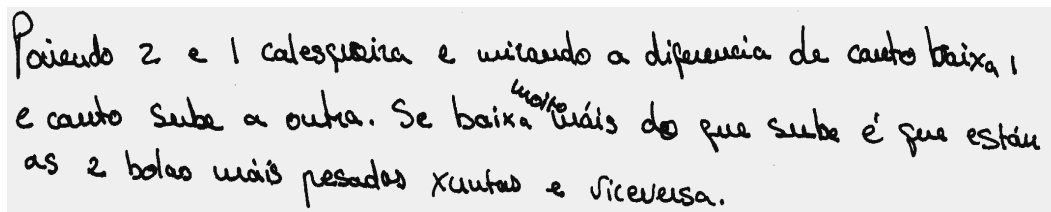 Poñendo 2 e 1 calesqueira e mirando a diferencia de canto baixa 1
e canto sube a outra. Se baixa moito máis do que sube é que están
as 2 bolas máis pesadas xuntas e viceversa.